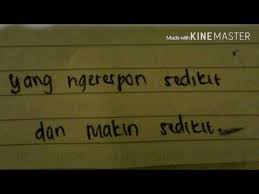 Made with KINEMASTER
yang ngerespon sedikit
dan makin sedikit.